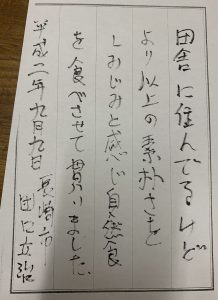 田舎に住んでるけど
より以上の素朴さを
しみじみと感じ自然食
を食べさせて貰いました
平成二年九月九日